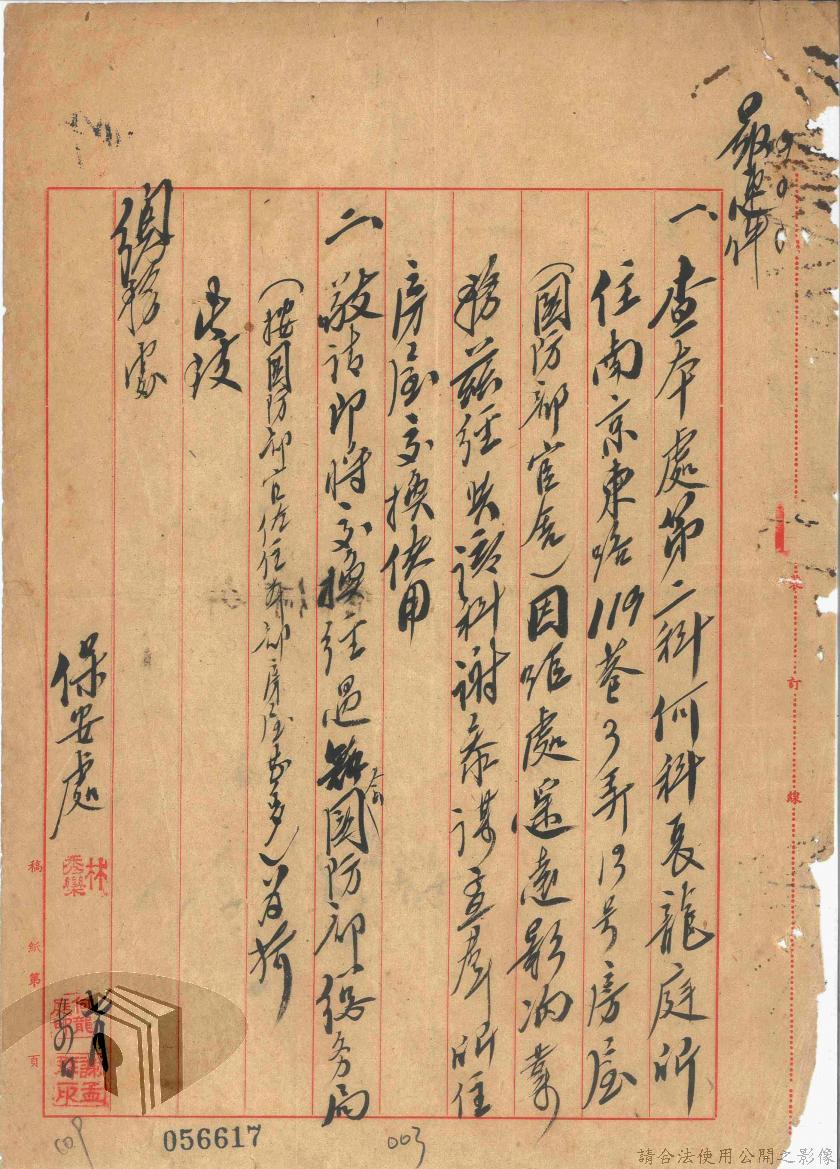 一、查本處第二科何科長龍庭所
住南京東路119巷3弄13号房屋
(國防部官舍)因距處窵遠影响業
務茲經與該科謝參謀孟群所住
房屋交換使用
二、敬請即將交換經過 國防部總务局
(按國防部官佐住本部房屋甚多)為荷
此致
總務處
保安處
林秀欒
七月
日
訂
線
稿紙第 頁
056617
003
請合法使用公開之影像